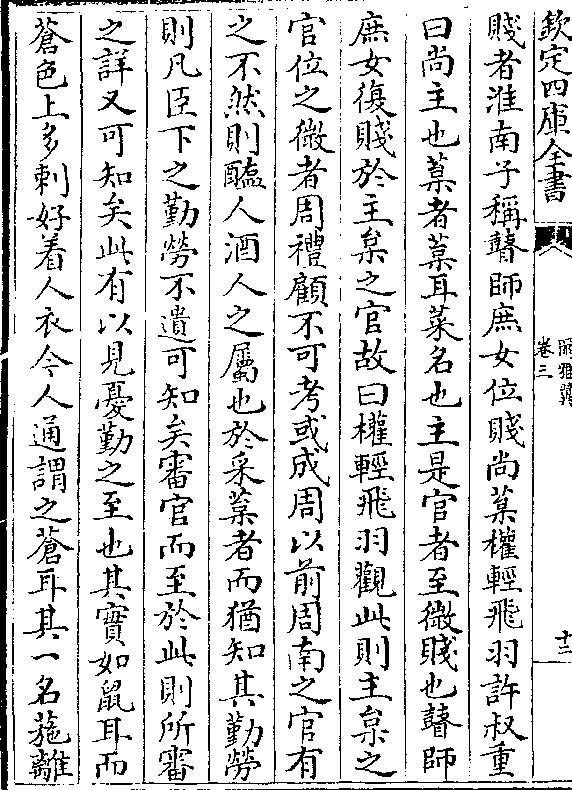 欽定四庫全書
爾雅翼
卷三
十三
賤者淮南子稱瞽師庶女位賤尚葈權輕飛羽許叔重
曰尚主也葈者葈耳菜名也主是官者至微賤也瞽師
庶女復賤於主枲之官故曰權輕飛羽觀此則主枲之
官位之微者周禮顧不可考或成周以前周南之官有
之不然則醯人酒人之屬也於采葈者而猶知其勤勞
則凡臣下之勤勞不遺可知矣審官而至於此則所審
之詳又可知矣此有以見憂勤之至也其實如鼠耳而
蒼色上多刺好着人衣今人通謂之蒼耳其一名葹離